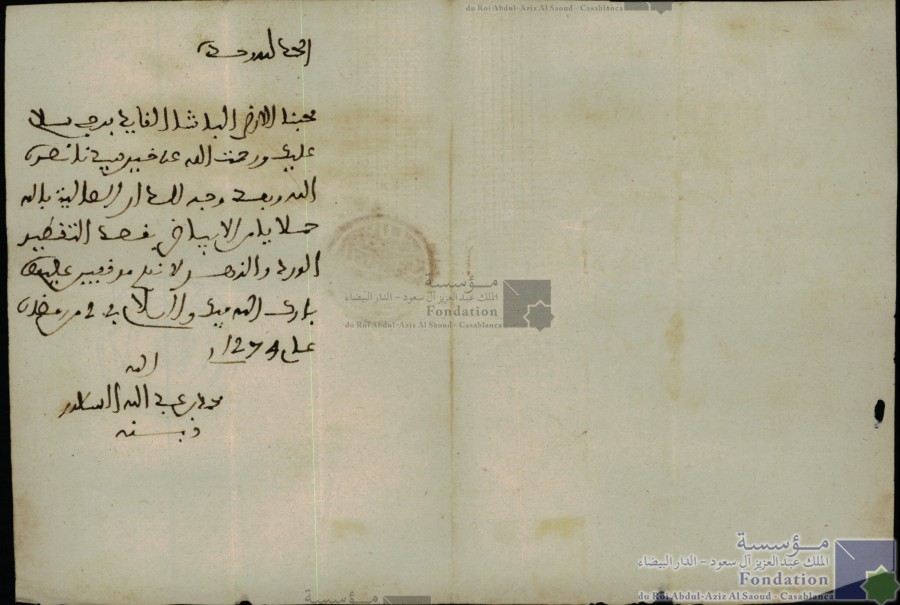 du Roi Abdul-Aziz Al Saoud - Casablanca
الحمد لله وحده
محبنا الارضى الباشا القايد فرجي سلام
عليك ورحمت الله عن خير سيدنا نصره
الله وبعد وجه للدار العالية بالله
حملا من الابيبا في بقصد التقطير
الورد والزهر لا بد
بارك الله فيك والسلام في 2 من رمضان
عام 1274
الله
محمد بن عبد الله
مؤسسة
الملك عبد العزيز آل سعود - الدار البيضاء
Fondation
du Roi Abdul-Aziz Al Saoud - Casablanca
مؤسسة
الملك عبد العزيز آل سعود - الدار البيضاء
Fondation
du Roi Abdul-Aziz Al Saoud - Casablanca
مؤسسة